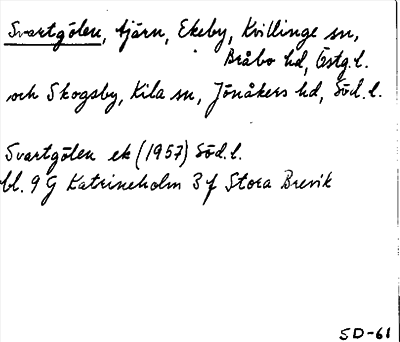 Svartgölen, tjärn, Ekeby, Kvillinge sn,
Bråbo hd, Östg.l.
och Skogsby, Kila sn, Jönåkers hd, Söd.l.
Svartgölen ek (1957) Söd.l.
bl. 9 G Katrineholm 3 f Stora Brevik
SD-61